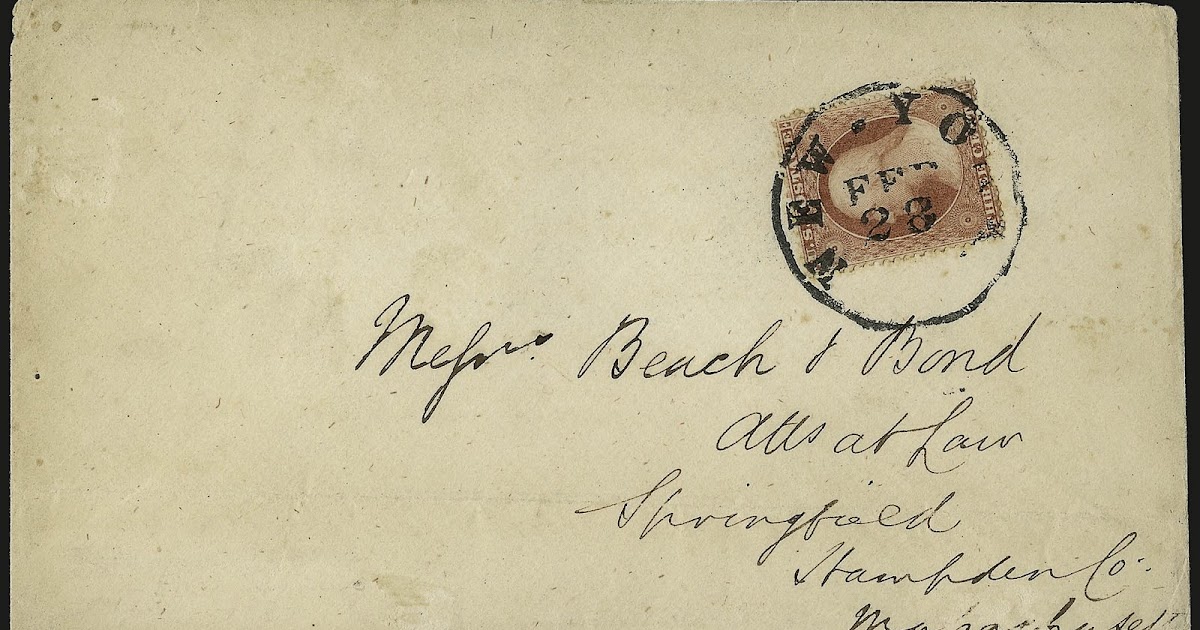 NEW-YO
FEB
28
Messrs. Beach & Bond
Atts at Law
Springfield
Hampden Co.